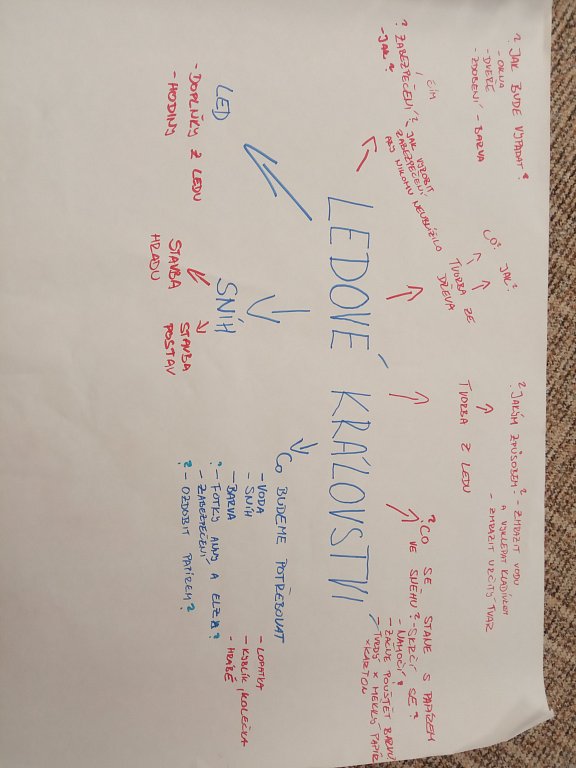 ? JAK BUDE VYPADAT?
- OKNA
- DVEŘE
- ZDOBENÍ - BARVA
ČÍM
? ZABEZPEČENÍ?
- JAK?
JAK VYROBIT
ZABEZPEČENÍ,
ABY NIKOMU NEUBLÍŽILO
CO? JAK?
TVORBA ZE
DŘEVA
? JAKÝM ZPŮSOBEM? - ZMRAZIT VODU
A VYKLEPAT KLADÍVKEM
- ZMRAZIT URČITÝ TVAR
TVORBA Z LEDU
? CO SE STANE S PAPÍREM
VE SNĚHU? - SKRČÍ SE?
- NAMOČÍ?
- ZAČNE POUŠTĚT BARVU
TVRDÝ X MĚKKÝ PAPÍR
X KARTON
LEDOVÉ KRÁLOVSTVÍ
LED
- DOPLŇKY Z LEDU
- HODINY
SNÍH
STAVBA
HRADU
STAVBA
POSTAV
CO BUDEME POTŘEBOVAT
- VODA
- SNÍH
- BARVA
? - FOTKY ANNY A ELZY?
- ZABEZPEČENÍ
? - OZDOBIT PAPÍREM?
- LOPATKA
- KYBLÍK, KOLEČKA
- HRÁBĚ